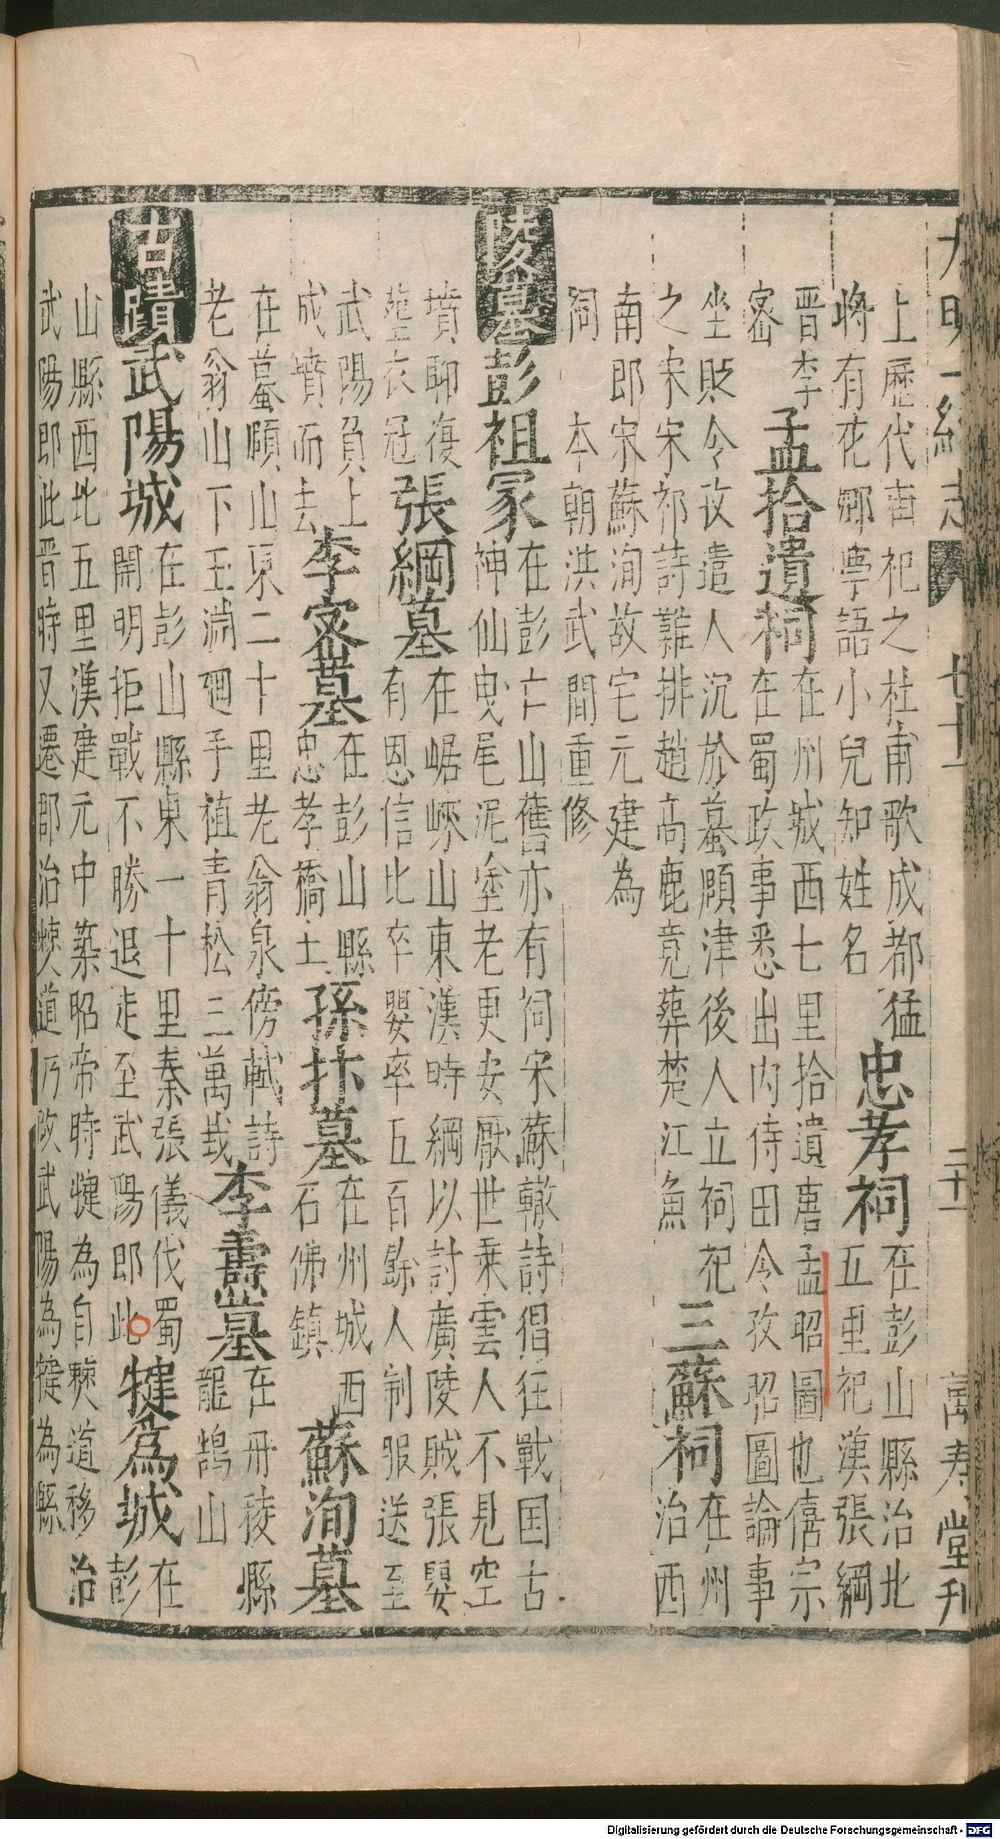 大明一統志 七十一 二十一 萬寿堂刋
上歷代畨祀之杜甫歌成都猛
將有花卿學語小兒知姓名
忠孝祠
在彭山縣治北
五里祀漢張綱
晋李
宻
孟拾遺祠
在州城西七里拾遺唐孟昭圖也僖宗
在蜀政事悉出内侍田令孜昭圖論事
坐貶令孜遣人沉於蟇頥津後人立祠祀
之宋宋祁詩難排趙高鹿竟葬楚江魚
三蘇祠
在州
治西
南郎宋蘇洵故宅元建為
祠 本朝洪武間重修
陵墓
彭祖冢
在彭亡山舊亦有祠宋蘇轍詩猖狂戰国古
神仙曳尾泥塗老更安厭世乗雲人不見空
墳聊復
塟衣冠
張綱墓
在崌崍山東漢時綱以討廣陵賊張嬰
有恩信比卒嬰率五百餘人制服送至
武陽負上
成墳而去
李宻墓
在彭山縣
忠孝橋土
孫抃墓
在州城西
石佛鎮
蘇洵墓
在蟇頥山東二十里老翁泉傍軾詩
老翁山下玉淵廻手植青松三萬栽
李燾墓
在丹稜縣
龍鵠山
古蹟
武陽城
在彭山縣東一十里秦張儀伐蜀
開明拒戰不勝退走至武陽即此
犍為城
在
彭
山縣西北五里漢建元中築昭帝時犍為自僰道移治
武陽即此晋時又遷郡治僰道乃改武陽為犍為縣
Digitalisierung gefördert durch die Deutsche Forschungsgemeinschaft - DFG